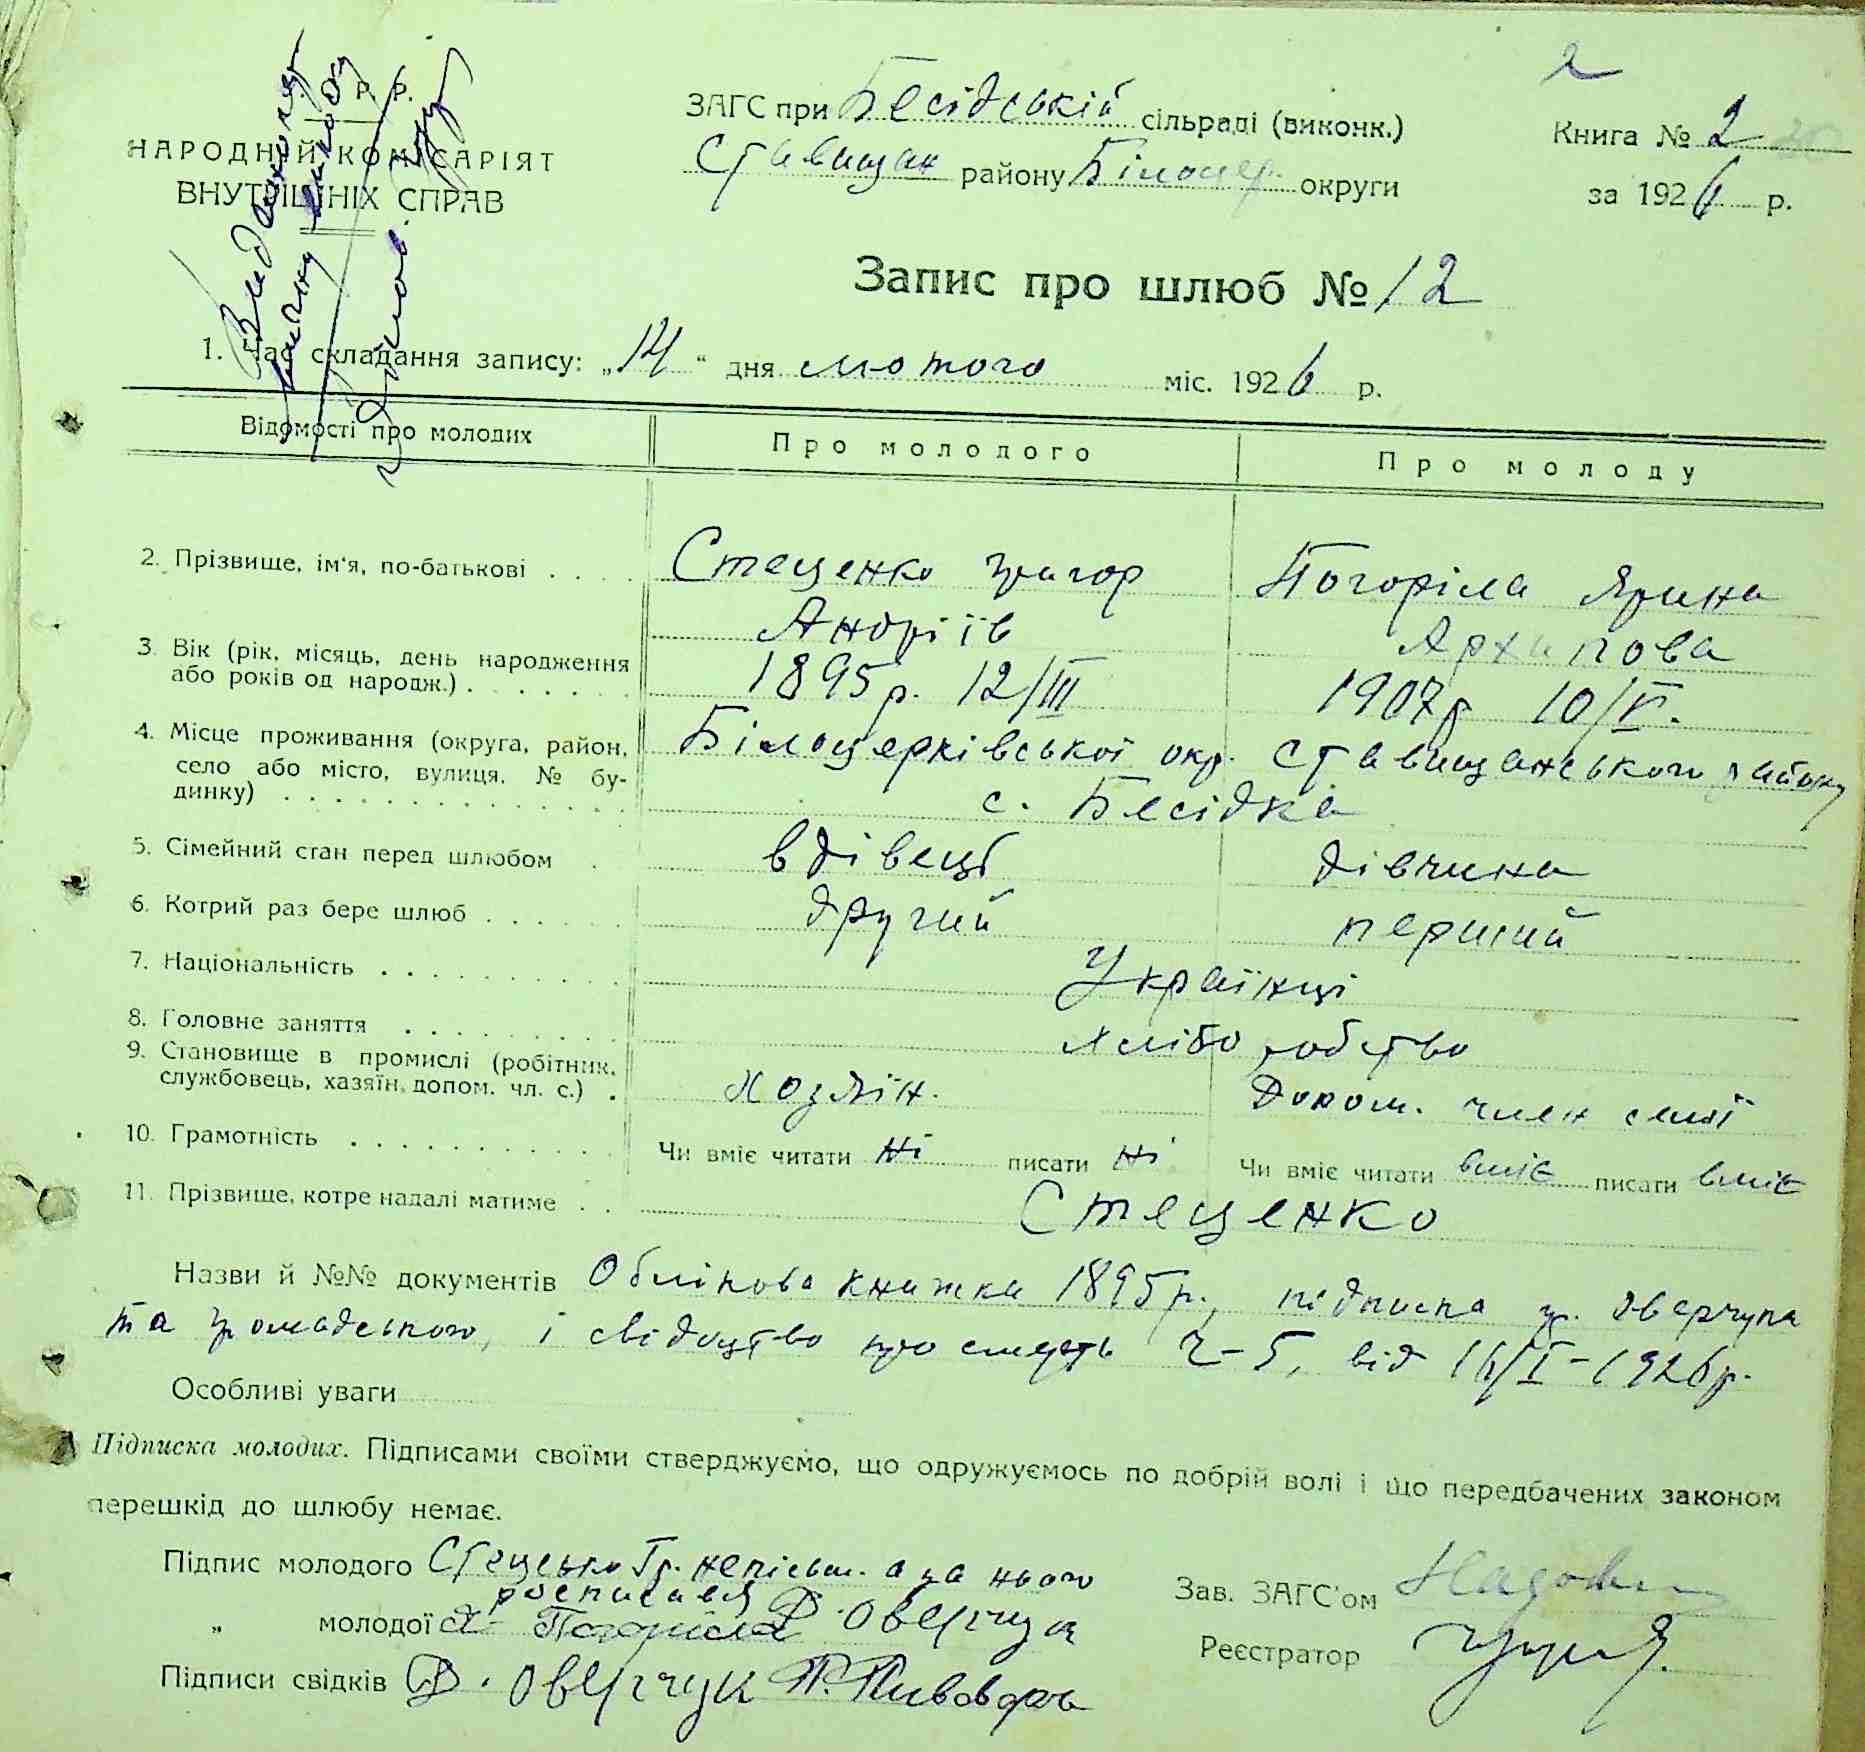 2
ЗАГС при Бесідській сільраді (виконк.)
Книга № 2
НАРОДНІЙ КОМІСАРІЯТ
Ставищан району Білоцер. округи
ВНУТРІШНІХ СПРАВ
за 1926 р.
Запис про шлюб № 12
1. Час складання запису: „14“ дня лютого міс. 1926 р.
Відомості про молодих
Про молодого
Про молоду
2. Прізвище, ім'я, по-батькові
Стеценко Григор
Погоріла Ярина
Андріїв
Архипова
3. Вік (рік, місяць, день народження
або років од народж.)
1895р. 12/III
1907р 10/V.
4. Місце проживання (округа, район,
село або місто, вулиця, № бу-
динку)
Білоцерківської окр. Ставищанського району
с. Бесідка
5. Сімейний стан перед шлюбом
вдівець
дівчина
6. Котрий раз бере шлюб
другий
перший
7. Національність
Українці
8. Головне заняття
хліборобство
9. Становище в промислі (робітник,
службовець, хазяїн, допом. чл. с.)
хозяїн.
Допом. член семї
10. Грамотність
Чи вміє читати ні писати ні
Чи вміє читати вміє писати вміє
11. Прізвище, котре надалі матиме
Стеценко
Назви й №№ документів Облікова книжка 1895р., підписка гр. Оверчука
та громадського, і свідоцтво про смерть Ч-5, від 16/I-1926р.
Особливі уваги
Підписка молодих. Підписами своїми стверджуємо, що одружуємось по добрій волі і що передбачених законом
перешкід до шлюбу немає.
Підпис молодого Стеценко Гр. непісьм. а за нього
росписався
Зав. ЗАГС'ом
„ молодої Погоріла Оверчук
Реєстратор
Підписи свідків Оверчук П. Пивоварь